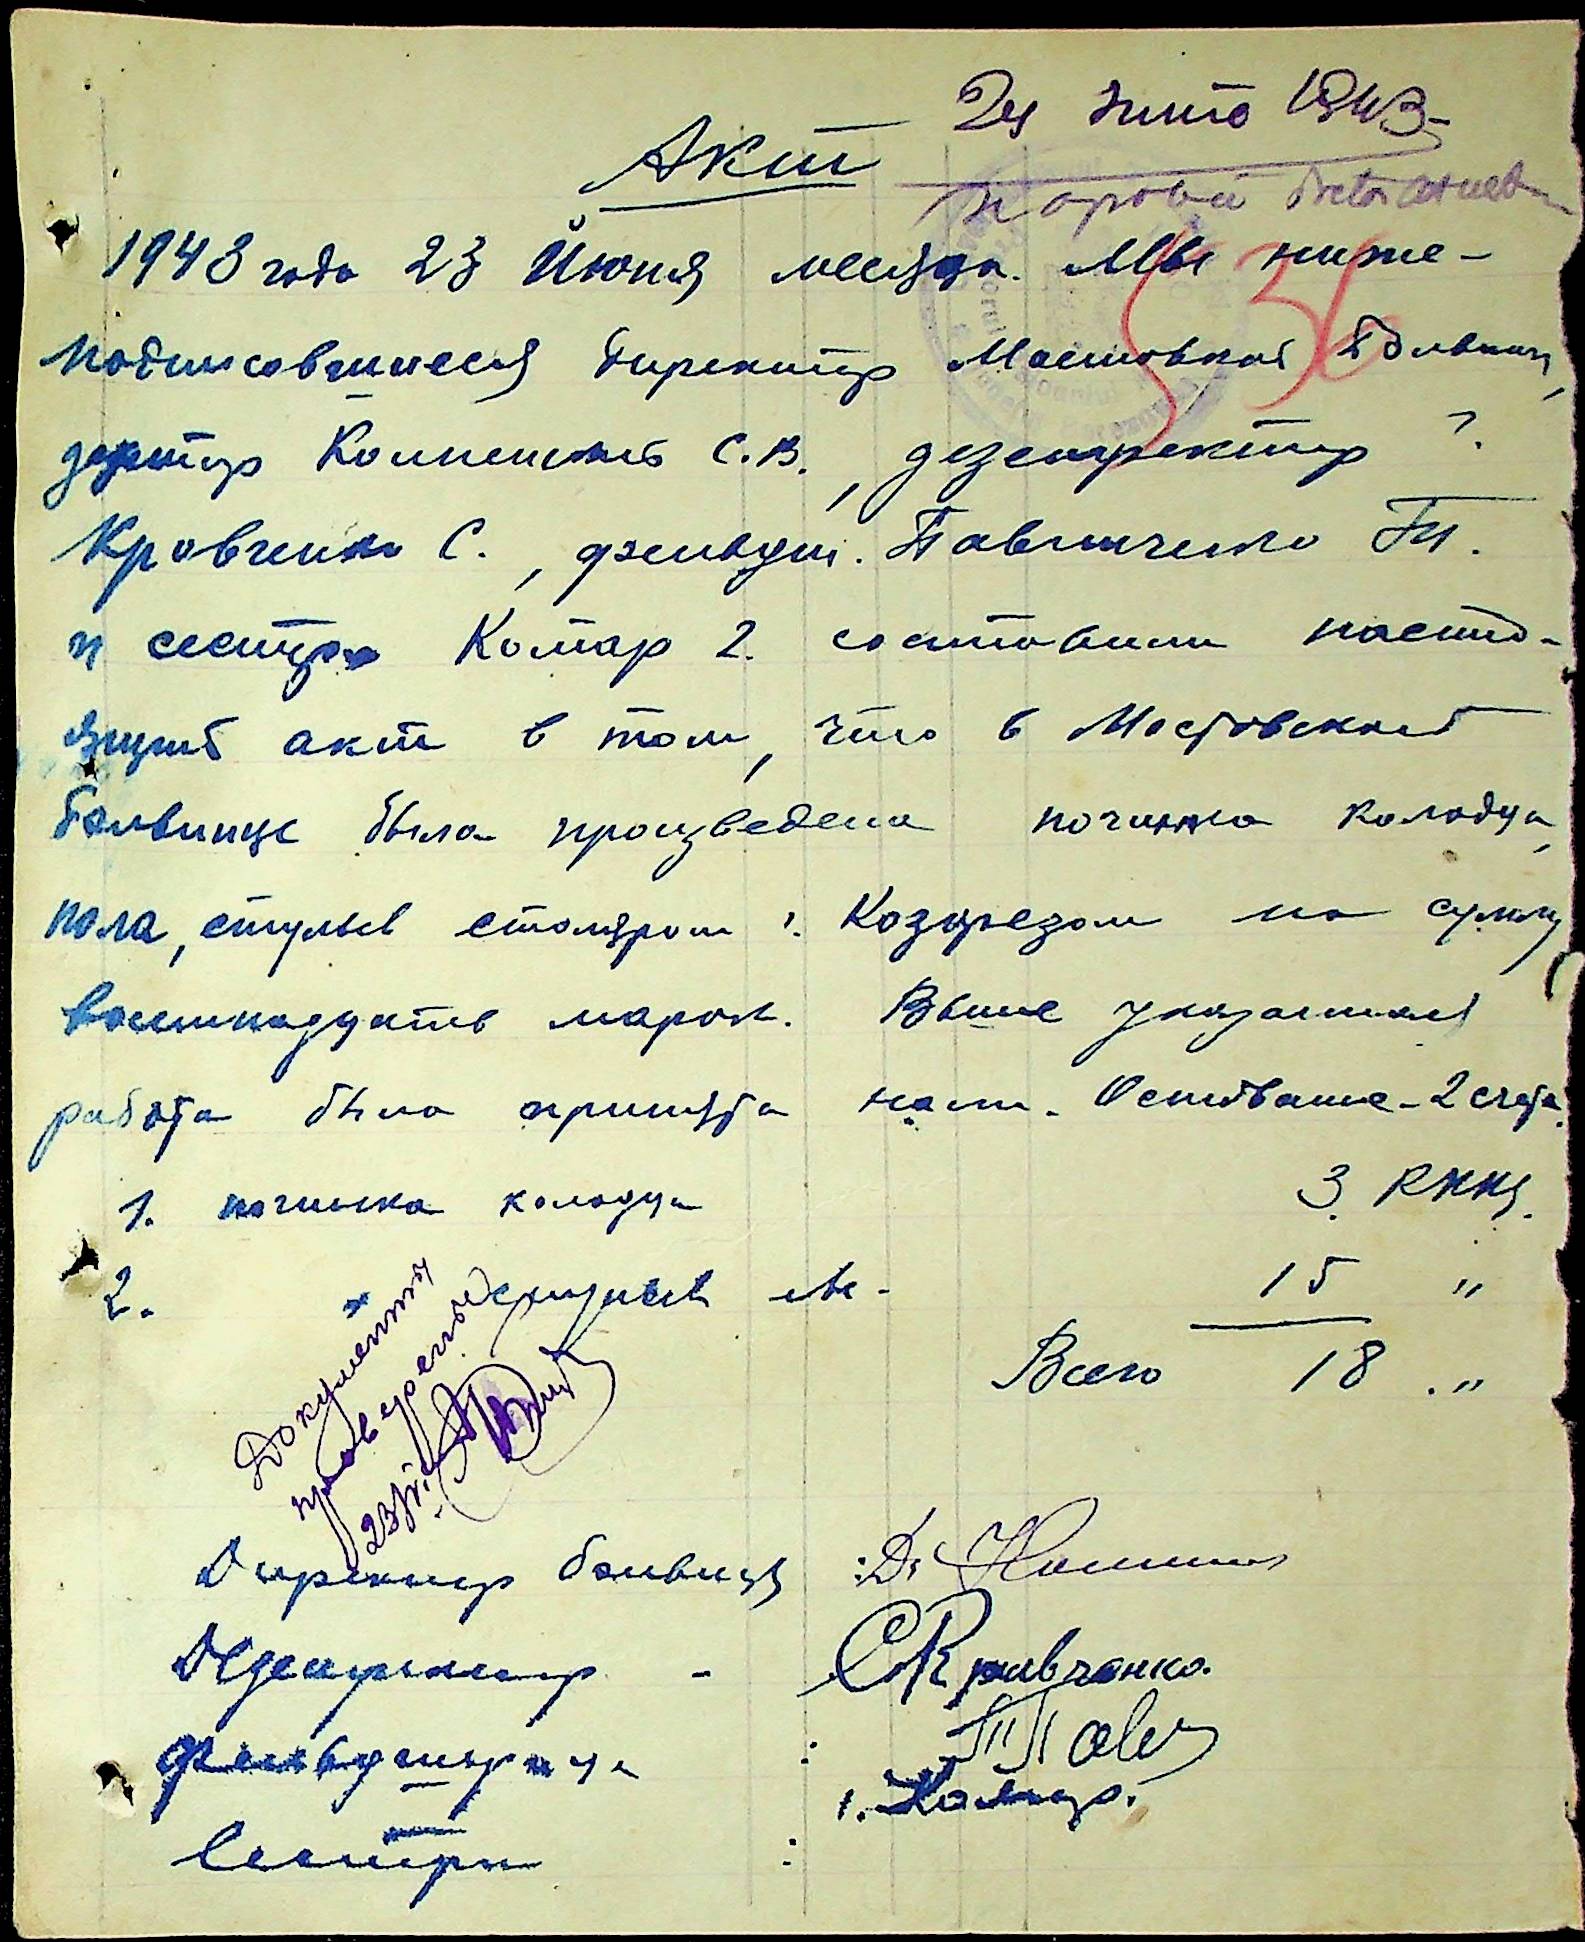 24 1943
Акт
1943 года 23 Июня месяца. Мы ниже-
подписавшиеся Директор Мостовской Больницы,
доктор С.В., дезенфектор
Кровченко С., фельдш. Павличенко
и сестра Комар 2. составили насто-
ящий акт в том, что в Мостовской
больнице была произведена починка колодца,
пола, стульев столяром Козорезом на сумму
восемнадцать марок. Выше указанная
работа была принята нами. Основание - 2 счета.
1. починка колодца 3.
2. " стульев 15 "
Всего 18 . "
Документы
проверены
23/VI
Директор больницы : Dr
Дезенфектор - С Кривченко.
Фельдшерица : Пав
Сестра : Комар.
36